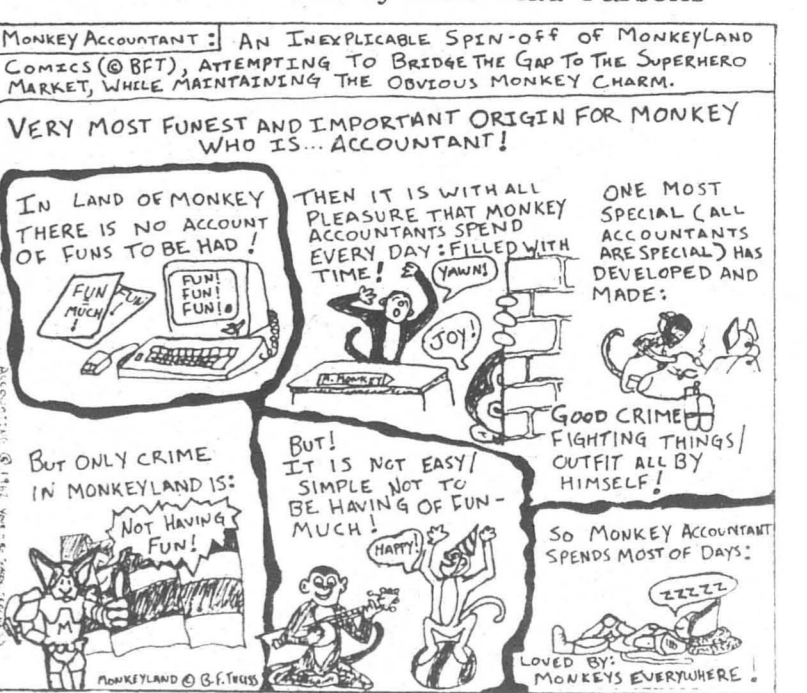 MONKEY ACCOUNTANT: AN INEXPLICABLE SPIN-OFF OF MONKEYLAND
COMICS (© BFT), ATTEMPTING TO BRIDGE THE GAP TO THE SUPERHERO
MARKET, WHILE MAINTAINING THE OBVIOUS MONKEY CHARM.
VERY MOST FUNEST AND IMPORTANT ORIGIN FOR MONKEY
WHO IS... ACCOUNTANT!
IN LAND OF MONKEY
THERE IS NO ACCOUNT
OF FUNS TO BE HAD!
FUN
MUCH
!
FUN!
FUN!
FUN!
FUN!
THEN IT IS WITH ALL
PLEASURE THAT MONKEY
ACCOUNTANTS SPEND
EVERY DAY: FILLED WITH
TIME!
YAWN!
JOY!
M. MONKEY
ONE MOST
SPECIAL (ALL
ACCOUNTANTS
ARE SPECIAL) HAS
DEVELOPED AND
MADE:
GOOD CRIME
FIGHTING THINGS/
OUTFIT ALL BY
HIMSELF!
BUT ONLY CRIME
IN MONKEYLAND IS:
NOT HAVING
FUN!
M
MONKEYLAND © B.F.
BUT!
IT IS NOT EASY/
SIMPLE NOT TO
BE HAVING OF FUN-
MUCH!
HAPPY!
SO MONKEY ACCOUNTANT
SPENDS MOST OF DAYS:
ZZZZZ
LOVED BY:
MONKEYS EVERYWHERE!